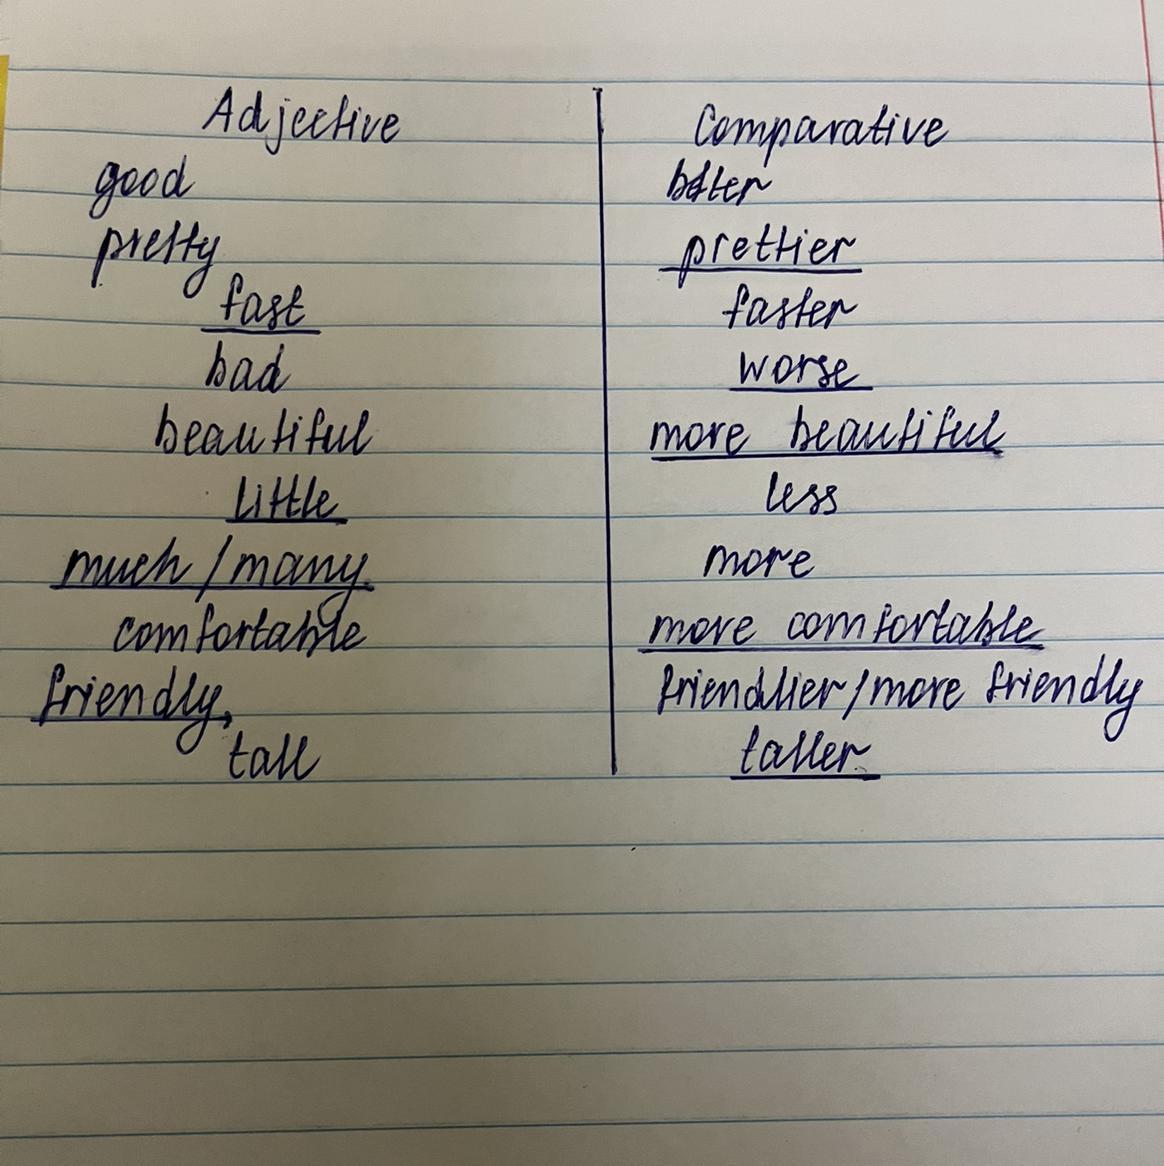 Adjective Comparative
good better
pretty prettier
fast faster
bad worse
beautiful more beautiful
little less
much / many more
comfortable more comfortable
friendly, friendlier/more friendly
tall taller